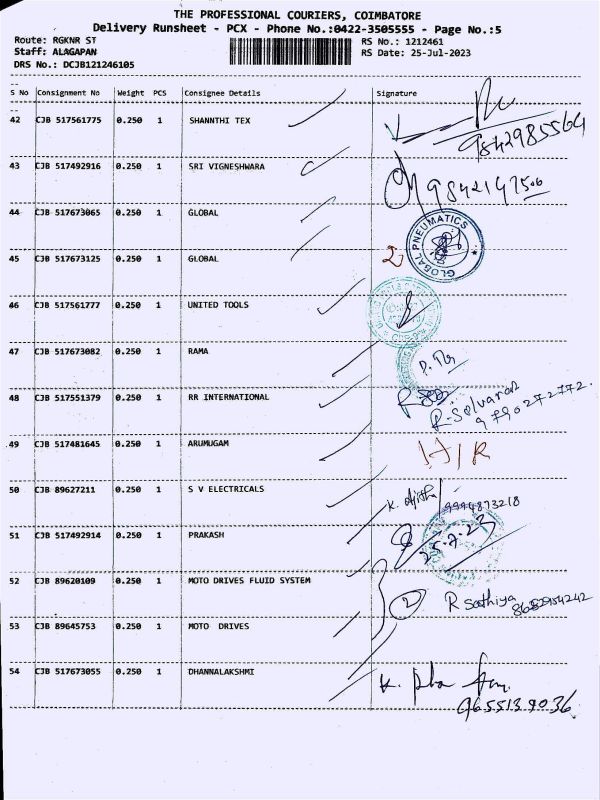 THE PROFESSIONAL COURIERS, COIMBATORE
Delivery Runsheet - PCX - Phone No.:0422-3505555 - Page No.:5
Route: RGKNR ST RS No.: 1212461
Staff: ALAGAPAN RS Date: 25-Jul-2023
DRS No.: DCJB121246105
S No Consignment No Weight PCS Consignee Details Signature
42 CJB 517561775 0.250 1 SHANNTHI TEX
9842985564
43 CJB 517492916 0.250 1 SRI VIGNESHWARA
44 CJB 517673065 0.250 1 GLOBAL
GLOBAL PNEUMATICS
45 CJB 517673125 0.250 1 GLOBAL 2
46 CJB 517561777 0.250 1 UNITED TOOLS
47 CJB 517673082 0.250 1 RAMA
48 CJB 517551379 0.250 1 RR INTERNATIONAL
R. Selvaraj
9790272772.
49 CJB 517481645 0.250 1 ARUMUGAM
50 CJB 89627211 0.250 1 S V ELECTRICALS
9994873218
51 CJB 517492914 0.250 1 PRAKASH 25.7.23
52 CJB 89620109 0.250 1 MOTO DRIVES FLUID SYSTEM
2 R Sathiya
53 CJB 89645753 0.250 1 MOTO DRIVES
54 CJB 517673055 0.250 1 DHANNALAKSHMI
9655139036